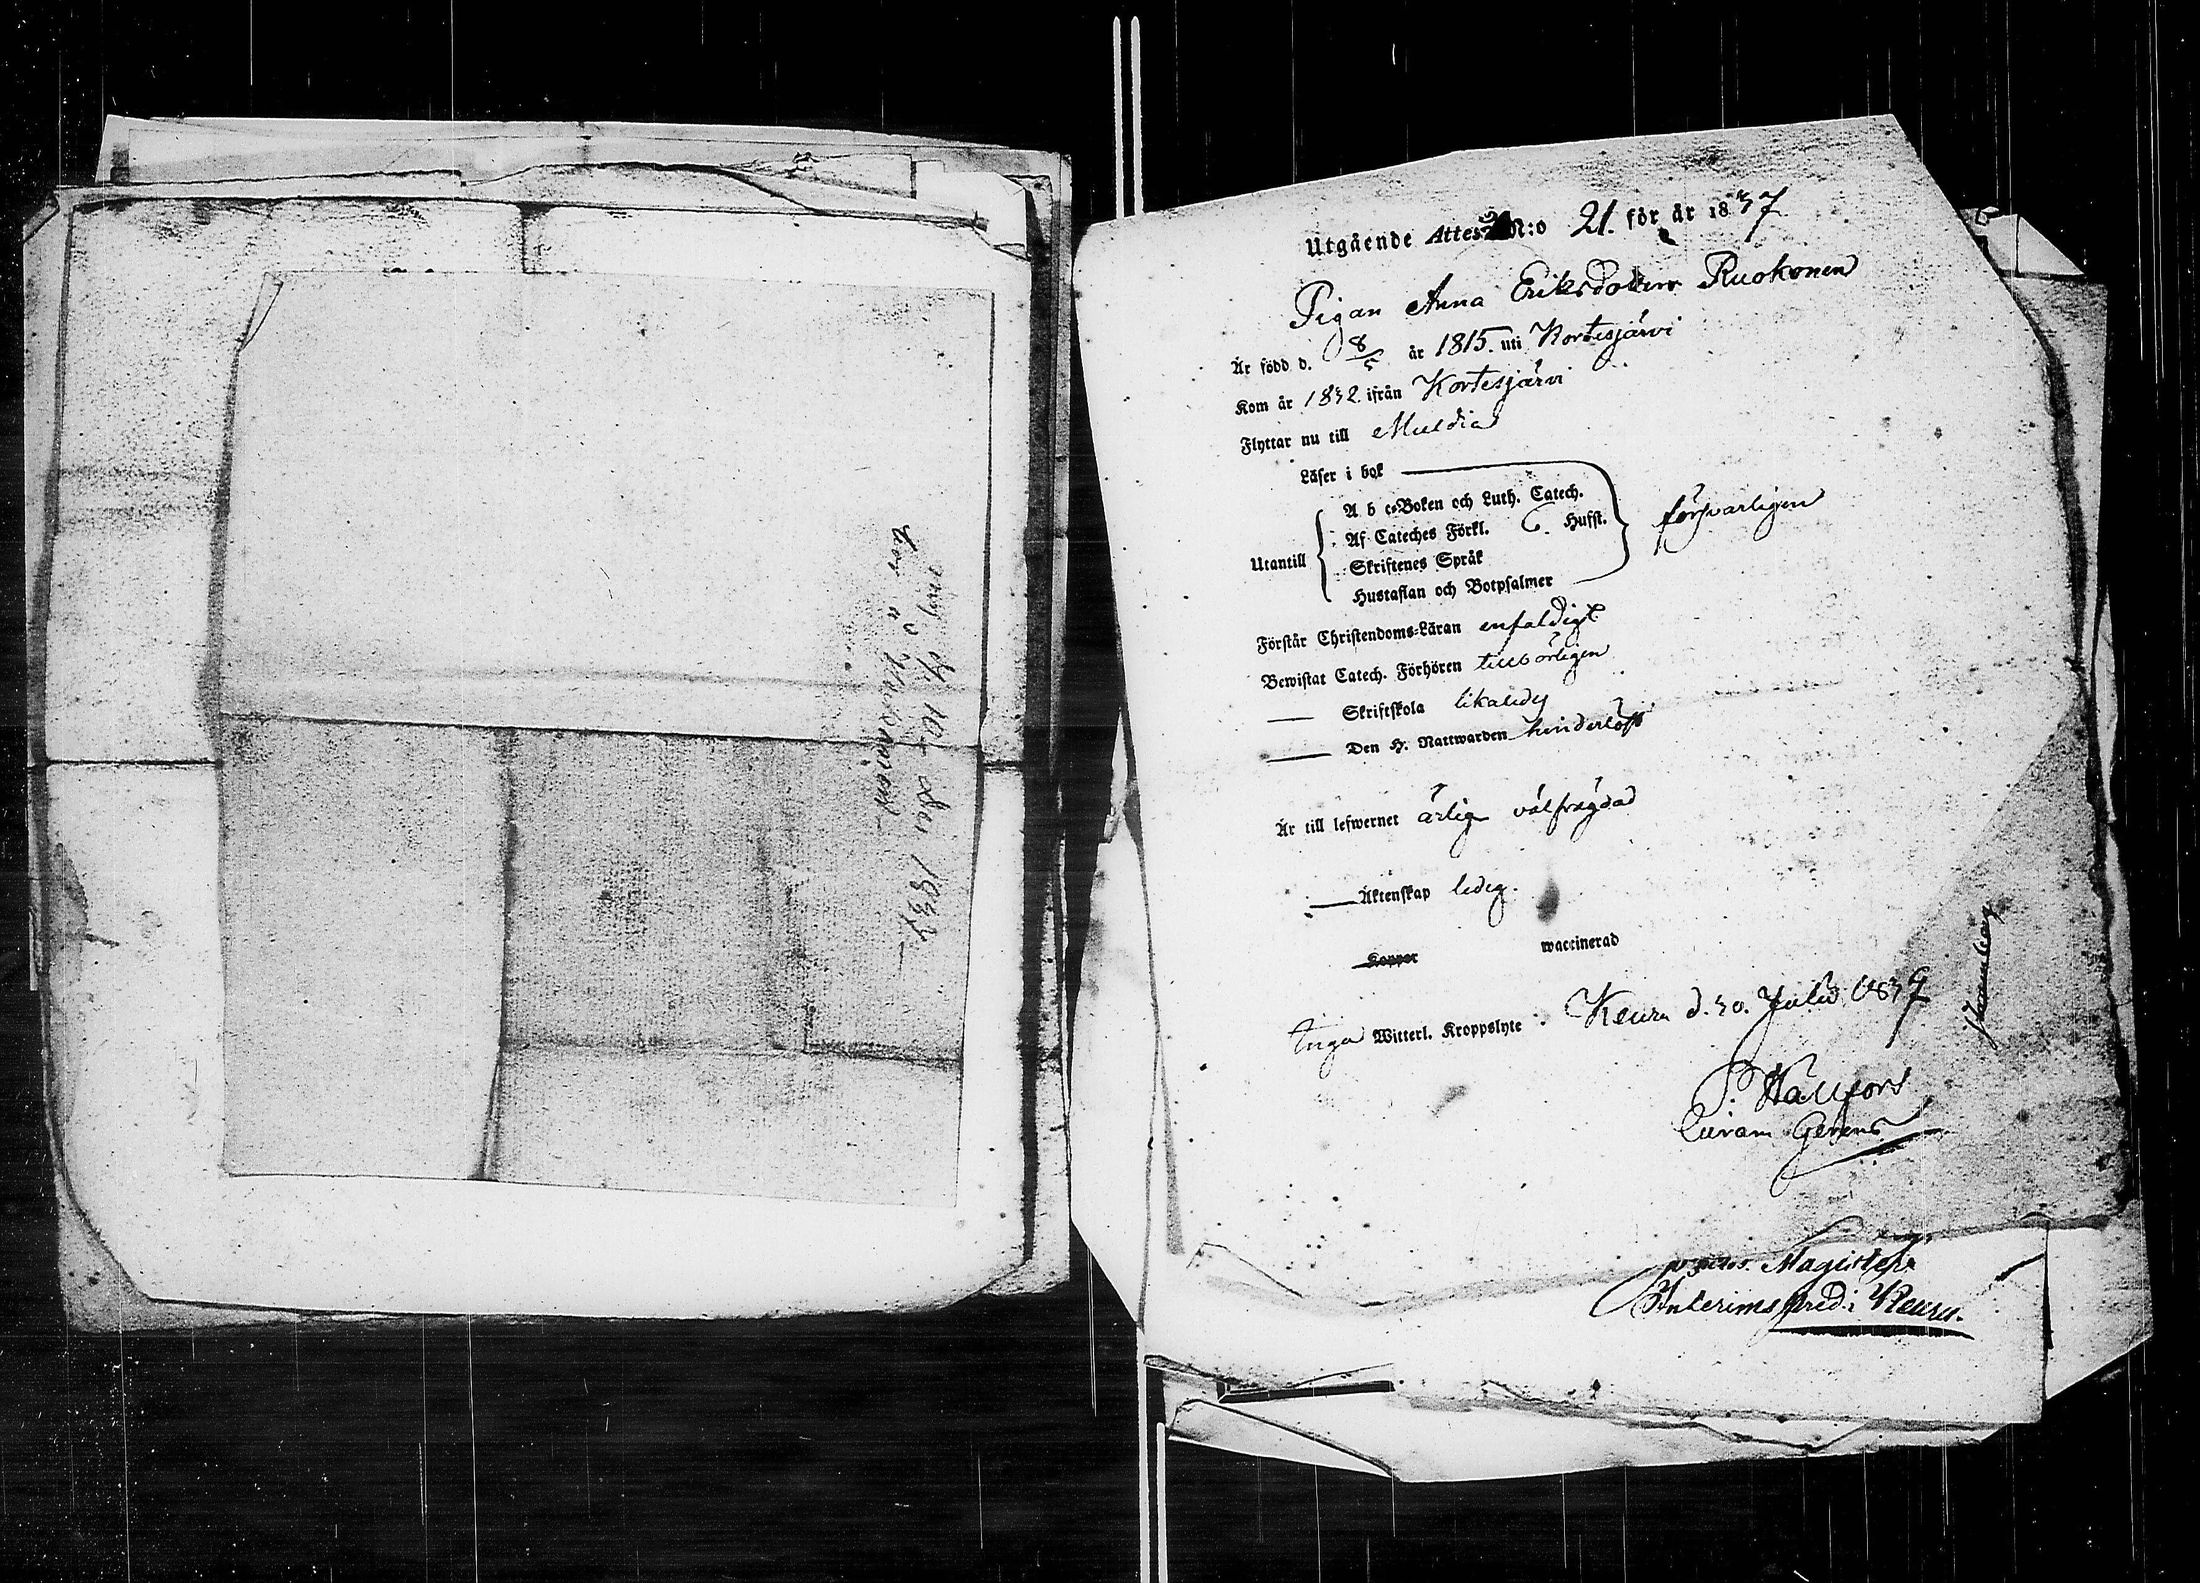 Utgående Attest N:o 21. för år 1837
Pigan Anna Eriksdotter Ruokonen
Är född d. 8/5 år 1815. uti Kortesjärvi
Kom år 1832. ifrån Kortesjärvi
Flyttar nu till Muldia
Läser i bok
A b c-Boken och Luth. Catech.
Af Cateches Förkl. Hufst.
Utantill
Skriftenes Språk
Hustaflan och Botpsalmer
försvarligen
Förstår Christendoms-Läran enfaldigt
Bewistat Catech. Förhören tillbörligen
— Skriftskola likaledes
— Den H. Nattwarden hinderlöst
Är till lefwernet ärlig välfrägdad
— Äktenskap ledig.
Koppor waccinerad
Inga Witterl. Kroppslyte. Keuru d. 30. Julii 1837
P. Hällfors
Curam Gerens
Magister
Interims pred: i Keuru.